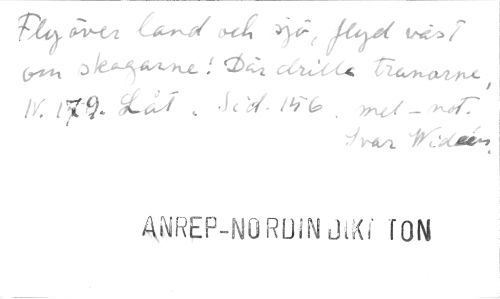 Fly över land och sjö, flyd väst
om skogarne! Där drilla tranorne,
N. 179. Låt. Sid. 156. mel-not.
Ivar Widéen.
ANREP-NORDIN DIKT TON